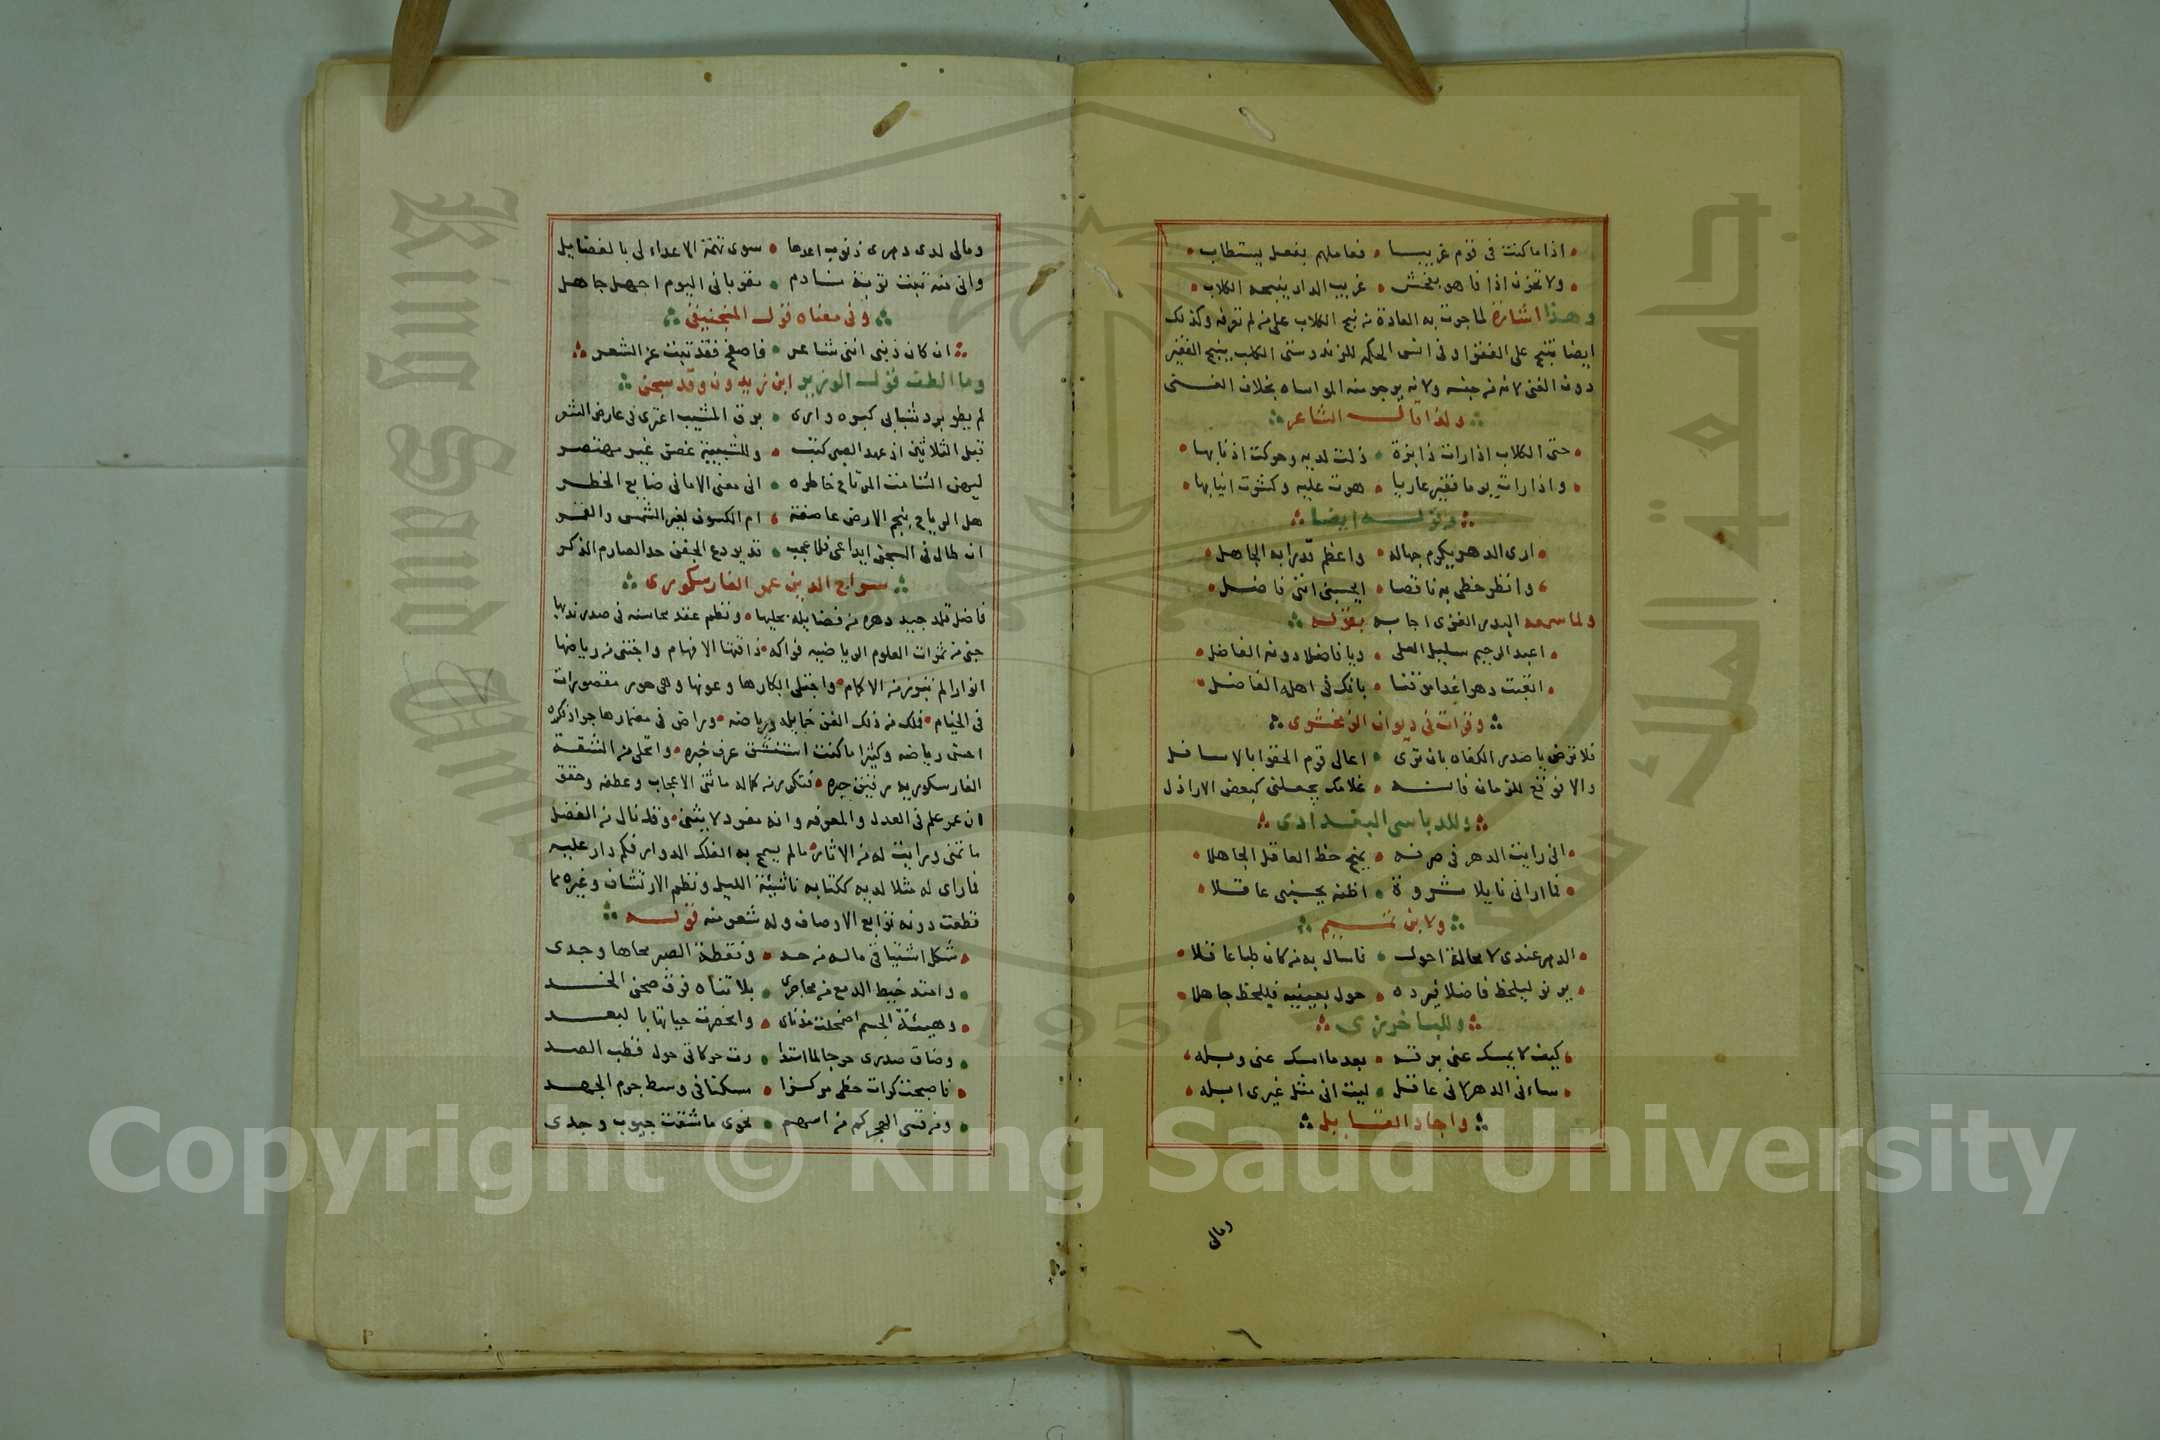 اذا ما كنت في قوم غريبا • فعاملهم بفعل يستطاب
ولا تحزن اذا فاهو بفحش • غريب الدار ينبحه الكلاب
وهذا اشارة لما جرت به العادة من نبح الكلاب على من لم تعرفه وكذلك
ايضا تنبح على الفقرا وفي الحكم الكلب ينبح الفقير
دون الغني لانه من جنسه ولانه يرجو منه المواساه بخلاف الغني
ولذا قال الشاعر
حتى الكلاب اذا رات ذا بزة • ذلت لديه وحركت اذنابها
واذا رات يوما فقيرا عاريا • هرت عليه وكشرت انيابها
وقوله ايضا
ارى الدهر يكرم جهاله • واعظم قدرا به الجاهل
وانظر حظي به ناقصا • ايحسبني انني فاضل
ولما سمعه البدر الغزي اجابه بقوله
اعبد الرحيم سليل العلى • ويا فاضلا دونه الفاضل
اتعبت دهرا غدا موقنا • بانك في اهله الفاضل
وقرات في ديوان الزمخشري
فلا ترض يا صدر الكفاه بان ترى • اعالي قوم الحقوا بالاسافل
والا توقع للزمان فانه • غلامك يجعلني كبعض الاراذل
وللدباسي البغدادي
اني رايت الدهر في صرفه • يمنح حظ العاقل الجاهلا
فما اراني نايلا ثروة • اظنه يحسبني عاقلا
ولابن تميم
الدهر عندي لا محالة احول • فاسال به من كان طبا عاقلا
يرنو ليلحظ فاضلا فيرده • حول بعينيه فيلحظ جاهلا
وللباخرزي
كيف لا يمسك عني برقه • بعد ما امسك عني وبله
ساءني الدهر لاني عاقل • ليت اني مثل غيري ابله
واجاد القايل
ومالي
ومالي لدى دهري ذنوب اعدها • سوى تهمة الاعداء لي بالفضايل
واني منه تبت توبة نادم • مقرباني اليوم اجهل جاهل
وفي معناه قول المنجنيقي
ان كان ذنبي انني شاعر • فاصفح فقد تبت عن الشعر
وما الطف قول الوزير ابن زيدون وقد سجن
لم يطو برد شبابي كبره وارى • برق المشيب اعتزى في عارض الشعر
قبل الثلاثين اذ عهد الصبي كثب • وللشبيبة غصن غير مهتصر
ليهن الشامت المرتاح خاطره • اني معنى الاماني ضايع الخطر
هل الرياح بنجم الارض عاصفة • ام الكسوف لغير الشمس والقمر
ان طال في السجن ايداعي فلا عجب • قد يودع الجفن حد الصارم الذكر
سراج الدين عمر الفارسكوري
فاضل قلد جيد دهره من فضايله بحليها • ونظم عقد محاسنه في صدر نديها
جنى من ثمرات العلوم الرياضيه فواكه • ذاقتها الافهام واجتنى من رياضها
انوارا لم تبرز من الاكمام • واجتلى ابكارها وعونها وهي حور مقصورات
في الخيام • فلك من ذلك الفن خمايله ورياضه • وراض في مضمارها جواد فكره
احسن رياضه وكثيرا ما كنت استنشق عرف خبره •
الفارسكوريه
ان عمر علم في العدل والمعرفه وانه مفرد لا يثنى • وقد نال من الفضل
ما تمنى ورايت له من الاثار • ما لم يسمح به الفلك الدوار فكم دار عليه
فما راى له مثلا لديه ككتابه ناشئة الليل ونظم الارتشاف وغيره مما
قطعت دونه توابع الاوصاف وله شعر منه قوله
شكل اشتياقي ماله من حد • ونقطة الصبر محاها وجدي
وامتد خيط الدمع من محاجري • بلا تناه فوق صحن الخد
وهيئة الجسم اضمحلت مذ ناى • وانحصرت جهاتها بالبعد
وضاق صدري حرجا لما استدا • رت حركاتي حول قطب الصد
فاصبحت كرات حظي مركزا • مسكنا في وسط جرم الجهد
ومن قسي الهجر كم من اسهم • نحوي ما شقت جيوب وجدي
Copyright © King Saud University
King Saud University
جامعة الملك سعود
1957